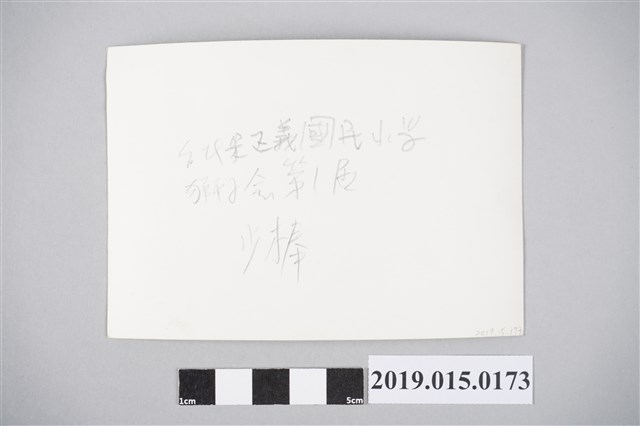 正義國民小学
第1屆
少棒
2019.15.173
1cm
5cm
2019.015.0173